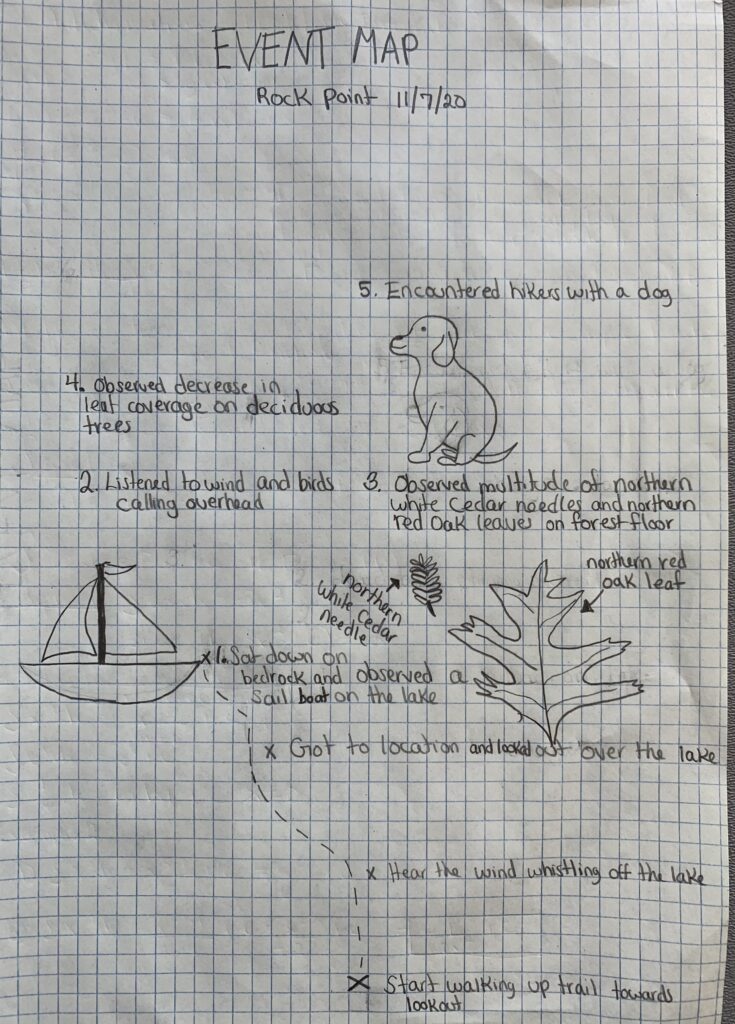 EVENT MAP
Rock Point 11/7/20
5. Encountered hikers with a dog
4. Observed decrease in
leaf coverage on deciduous
trees
2. Listened to wind and birds
calling overhead
3. Observed multitude of northern
white Cedar needles and northern
red Oak leaves on forest floor
northern
white Cedar
needle
northern red
oak leaf
x 1. Sat down on
bedrock and observed a
sail boat on the lake
x Got to location and looked out over the lake
x Hear the wind whistling off the lake
X Start walking up trail towards
lookout